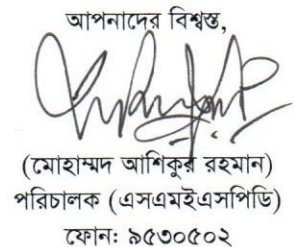 আপনাদের বিশ্বস্ত,
(মোহাম্মদ আশিকুর রহমান)
পরিচালক (এসএমইএসপিডি)
ফোন: ৯৫৩০৫০২